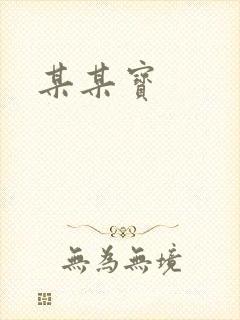 某某寶
無為無境